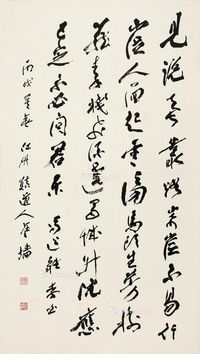 見說蠶叢路崎嶇不易行
山從人面起雲傍馬頭生芳樹
籠秦棧春流遶蜀城升沉應
已定不必問君平
丙戌